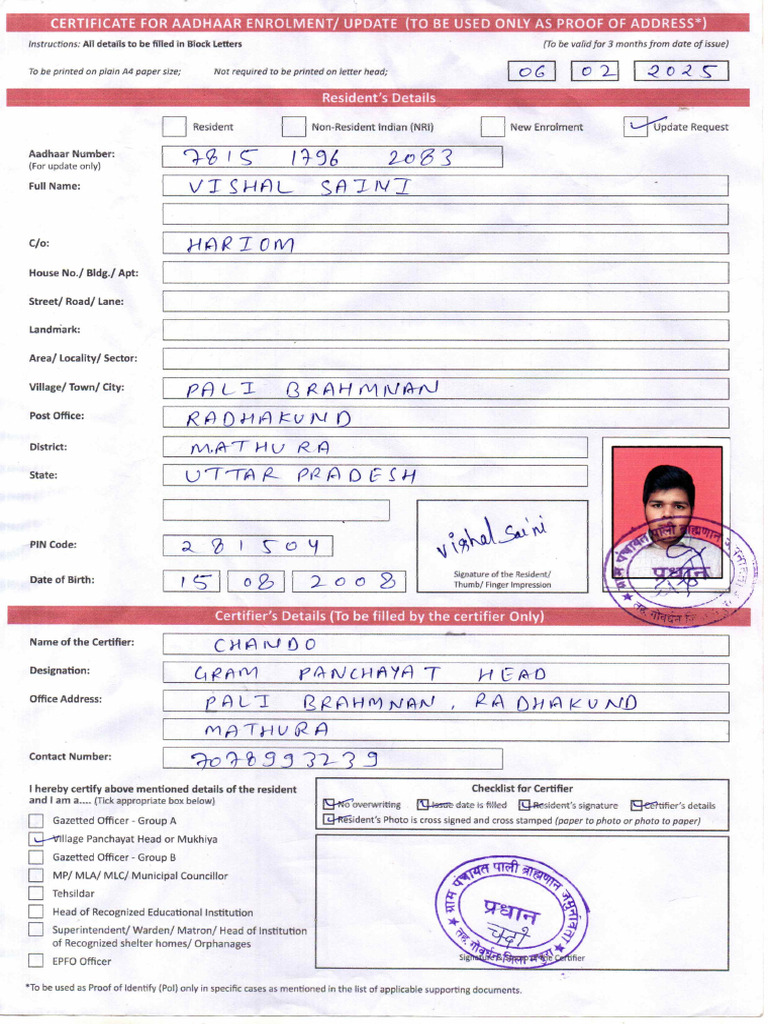 CERTIFICATE FOR AADHAAR ENROLMENT/ UPDATE (TO BE USED ONLY AS PROOF OF ADDRESS*)
Instructions: All details to be filled in Block Letters (To be valid for 3 months from date of issue)
To be printed on plain A4 paper size; Not required to be printed on letter head; 06 02 2025
Resident's Details
Resident Non-Resident Indian (NRI) New Enrolment Update Request
Aadhaar Number: 7815 1796 2083
(For update only)
Full Name: VISHAL SAINI
C/o: HARIOM
House No./ Bldg./ Apt:
Street/ Road/ Lane:
Landmark:
Area/ Locality/ Sector:
Village/ Town/ City: PALI BRAHMNAN
Post Office: RADHAKUND
District: MATHURA
State: UTTAR PRADESH
Vishal Saini
PIN Code: 281504
Signature of the Resident/
Thumb/ Finger Impression
Date of Birth: 15 08 2008
ग्राम पंचायत पाली ब्राह्मणान
प्रधान
तह. गोवर्धन
Certifier's Details (To be filled by the certifier Only)
Name of the Certifier: CHANDO
Designation: GRAM PANCHAYAT HEAD
Office Address: PALI BRAHMNAN, RADHAKUND
MATHURA
Contact Number: 7078993239
I hereby certify above mentioned details of the resident
and I am a.... (Tick appropriate box below)
Gazetted Officer - Group A
Village Panchayat Head or Mukhiya
Gazetted Officer - Group B
MP/ MLA/ MLC/ Municipal Councillor
Tehsildar
Head of Recognized Educational Institution
Superintendent/ Warden/ Matron/ Head of Institution
of Recognized shelter homes/ Orphanages
EPFO Officer
Checklist for Certifier
No overwriting Issue date is filled Resident's signature Certifier's details
Resident's Photo is cross signed and cross stamped (paper to photo or photo to paper)
ग्राम पंचायत पाली ब्राह्मणान जमुनावता
प्रधान
चन्दो
तह. गोवर्धन जिला मथुरा
Signature & Stamp of the Certifier
*To be used as Proof of Identify (PoI) only in specific cases as mentioned in the list of applicable supporting documents.